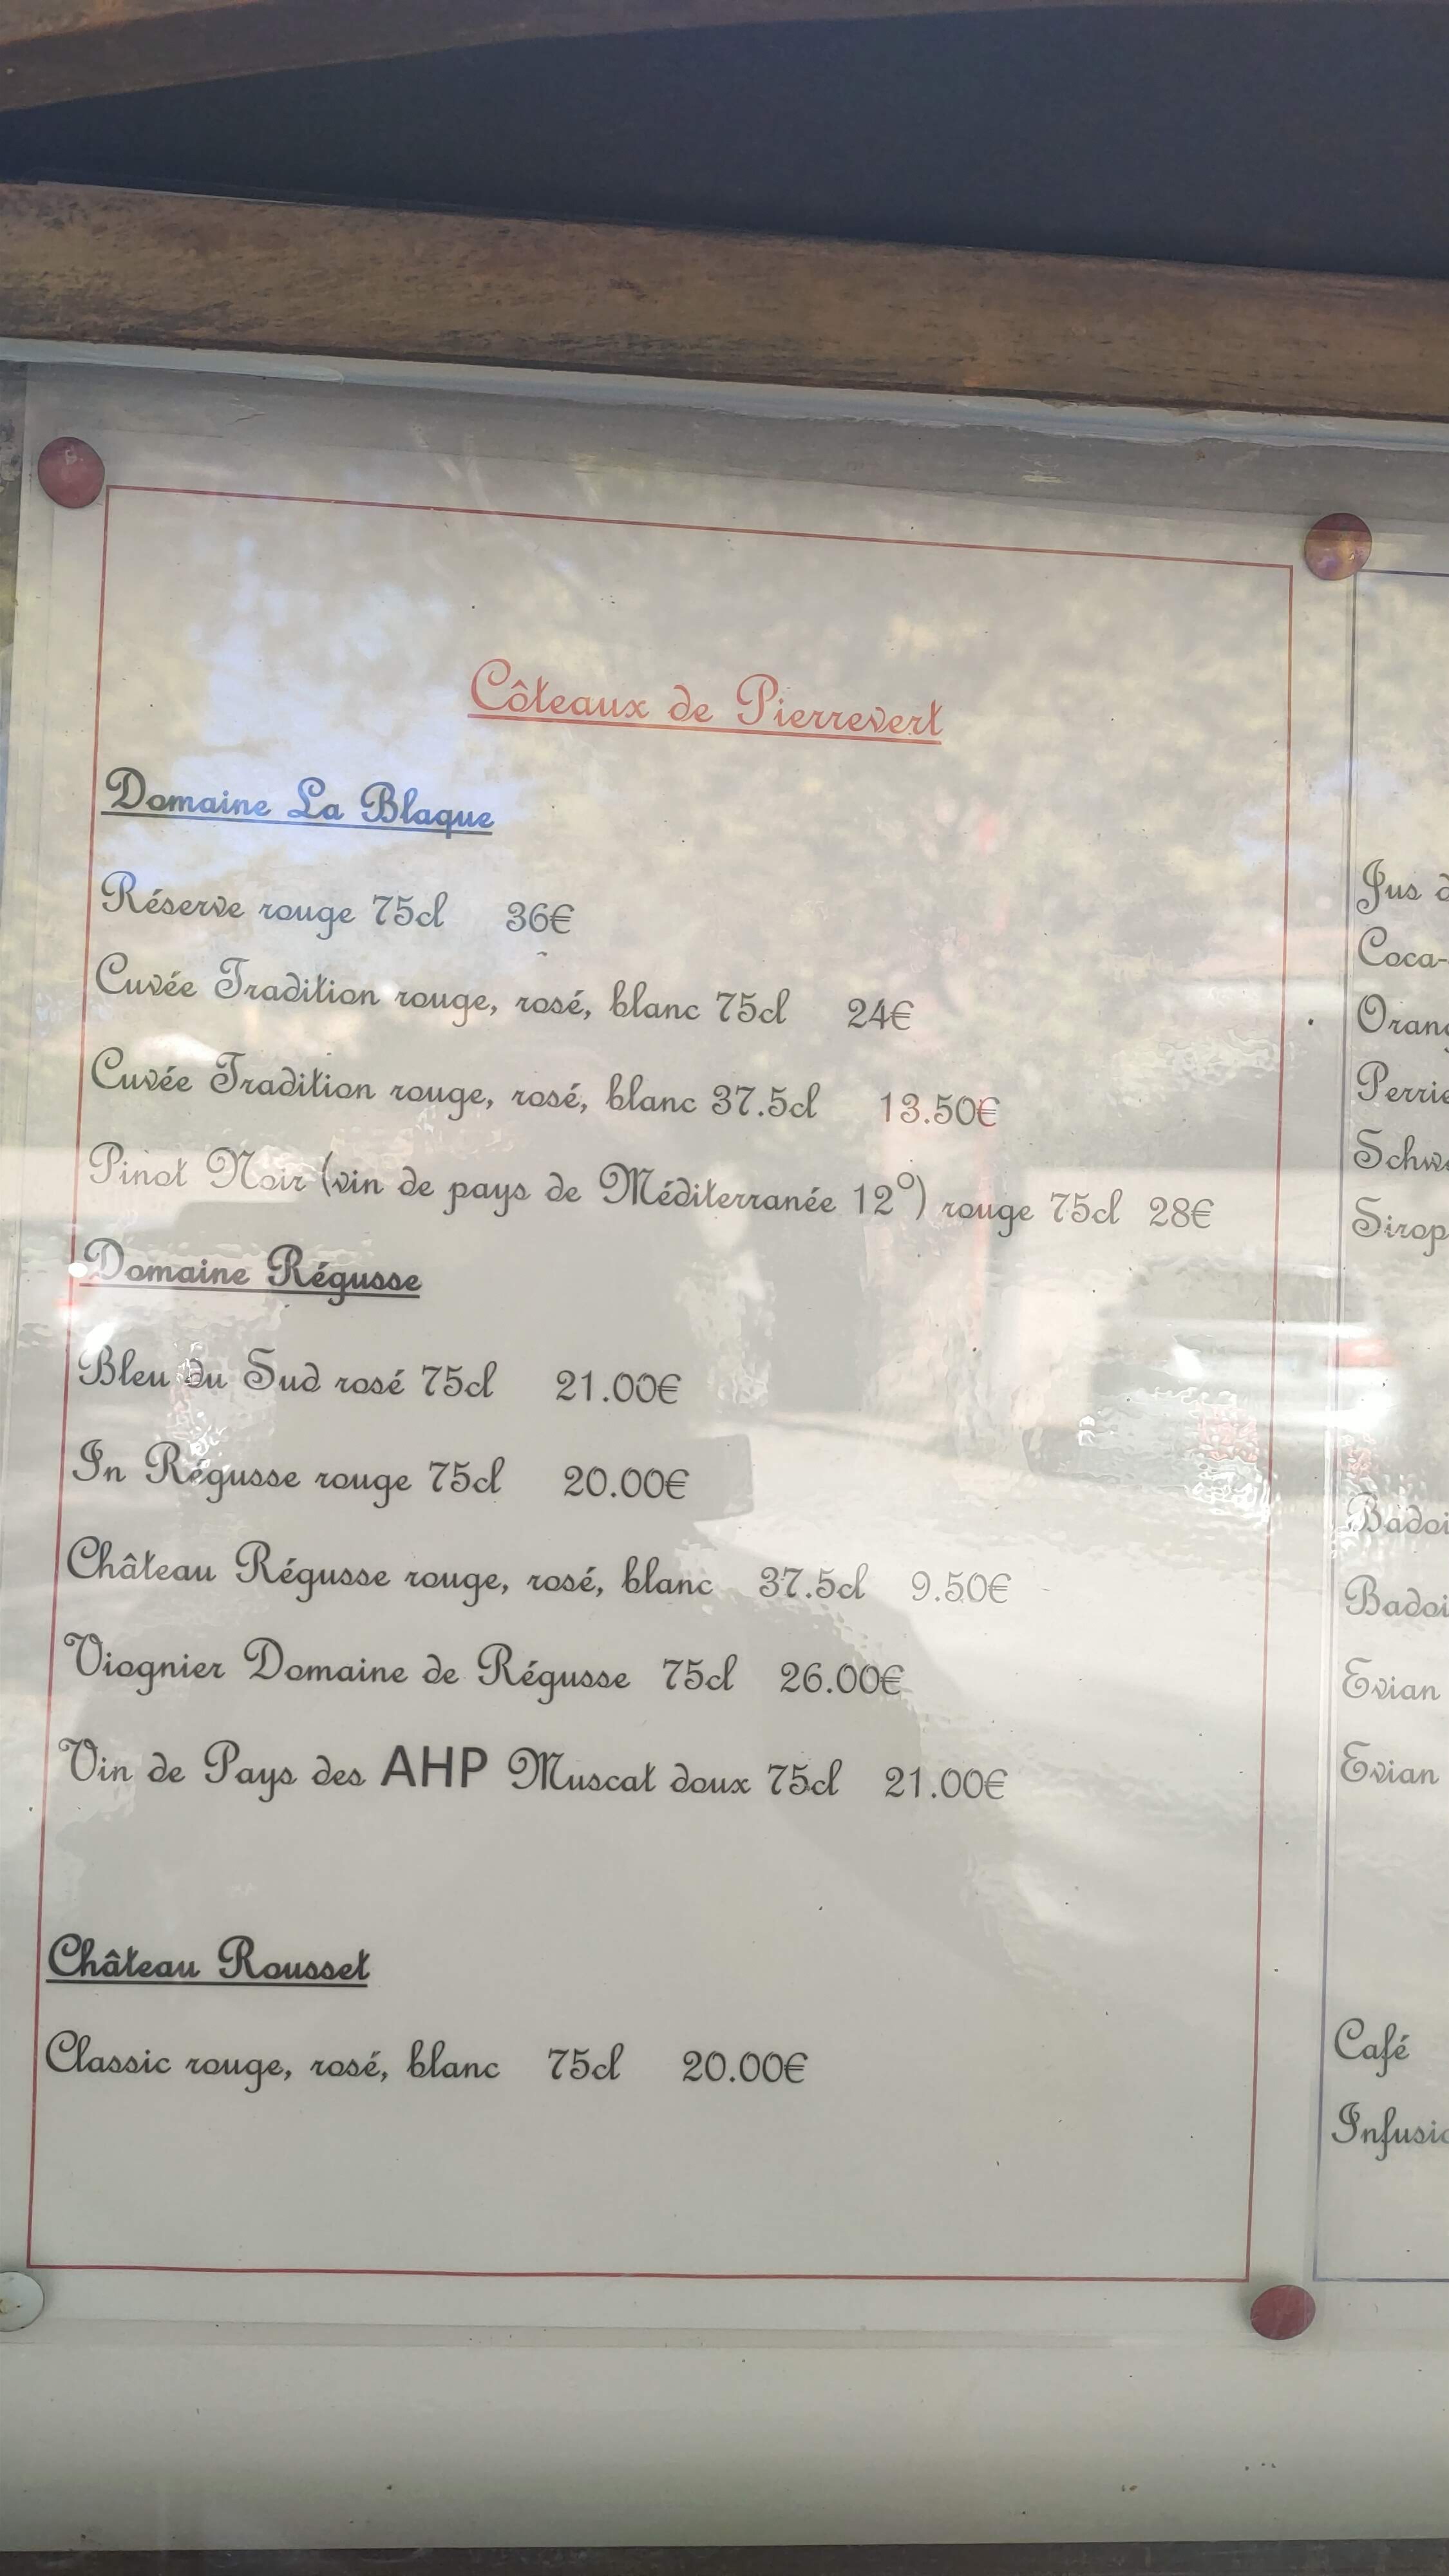 Côteaux de Pierrevert
Domaine La Blaque
Réserve rouge 75cl 36€
Cuvée Tradition rouge, rosé, blanc 75cl 24€
Cuvée Tradition rouge, rosé, blanc 37.5cl 13.50€
Pinot Noir (vin de pays de Méditerranée 12°) rouge 75cl 28€
Domaine Régusse
Bleu du Sud rosé 75cl 21.00€
In Régusse rouge 75cl 20.00€
Château Régusse rouge, rosé, blanc 37.5cl 9.50€
Viognier Domaine de Régusse 75cl 26.00€
Vin de Pays des AHP Muscat doux 75cl 21.00€
Château Rousset
Classic rouge, rosé, blanc 75cl 20.00€
Jus d
Coca-
Orang
Perrie
Schwe
Sirop
Badoi
Badoi
Evian
Evian
Café
Infusio